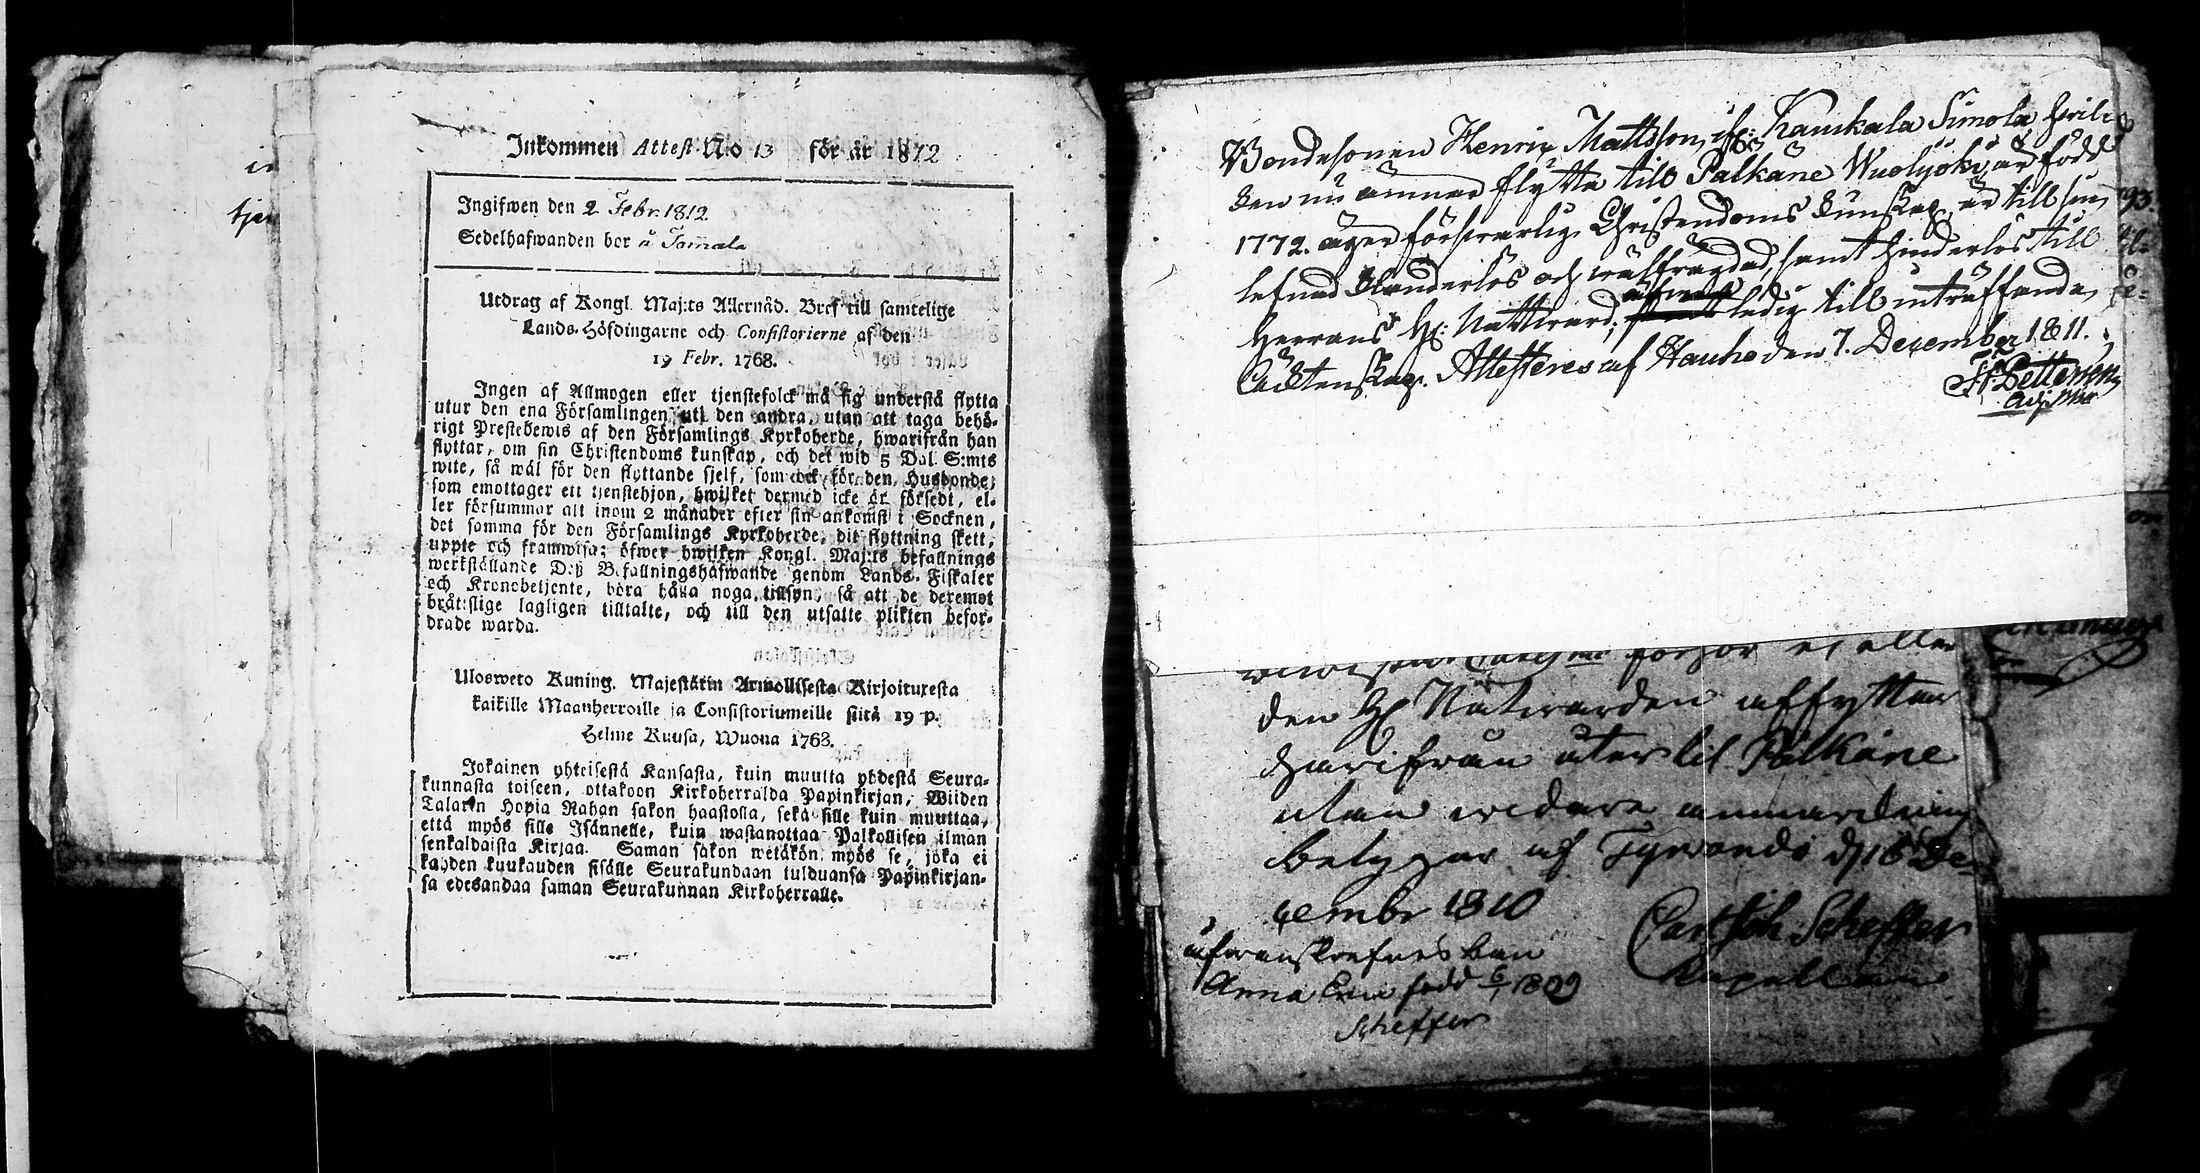 in
tjen
Inkommen Attest No 13 för år 1872
Ingifwen den 2 Febr. 1812
Sedelhafwanden bor å Tom̄ola
Utdrag af Kongl. Maj:ts Allernåd. Bref till samtelige
Lands-Höfdingarne och Consistorierne af den
19 Febr. 1768.
Ingen af Allmogen eller tjenstefolck må sig understå flytta
utur den ena Församlingen uti den andra, utan att taga behö-
rigt Prestebewis af den Församlings Kyrkoherde, hwarifrån han
flyttar, om sin Christendoms kunskap, och det wid 5 Dal. S:mts
wite, så wäl för den flyttande sjelf, som ock för den Husbonde,
som emottager ett tjenstehjon, hwilket dermed icke är försedt, el-
ler försummar att inom 2 månader efter sin ankomst i Socknen,
det samma för den Församlings Kyrkoherde, dit flyttning skett,
uppte och framwisa; öfwer hwilken Kongl. Maj:ts befallnings
werkställande Deß Befallningshafwande genom Lands-Fiskaler
och Kronobetjente, böra hålla noga tillsyn, så att de deremot
bråtslige lagligen tilltalte, och till den utsatte plikten befor-
drade warda.
Ulosweto Kuning. Majestätin Armollisesta Kirjoituresta
kaikille Maanherroille ja Consistoriumeille siitä 19 p.
Helme Kuusa, Wuona 1768.
Jokainen yhteisestä Kansasta, kuin muutta yhdestä Seura-
kunnasta toiseen, ottakoon Kirkoherralda Papinkirjan, Wiiden
Talarin Hopia Rahan sakon haastolla, sekä sille kuin muuttaa,
että myös sille Isännelle, kuin wastanottaa Palkollisen ilman
senkaldaista Kirjaa. Saman sakon wetäkön myös se, joka ei
kahden kuukauden sisälle Seurakundaan tulduansa Papinkirjan-
sa edesandaa saman Seurakunnan Kirkoherralle.
Bondesonen Henric Mattsson ifr: Kaukala Simola hvil-
ken nu ämnar flytta till Palkäne Wuolijoki, är född
1772. äger försvarlig Christendoms kunskap, är till sin
lefnad klanderlös och wälfrägdad, samt hinderlös till
Herrans H: Nattward; ledig till inträffande
Ächtenskap. Attesteres af Hauho den 7. December 1811.
Adj. Min
93.
förhör ej eller
den H Natwarden afflyttar
härifrån åter til Pälkäne
utan widare anmärkning
betygar af Tyrwändö d 16 De-
cembr 1810
Carl Joh. Scheffer
Kapellan
ofvanskrefnes barn
Anna född 6/1 1809
Scheffer